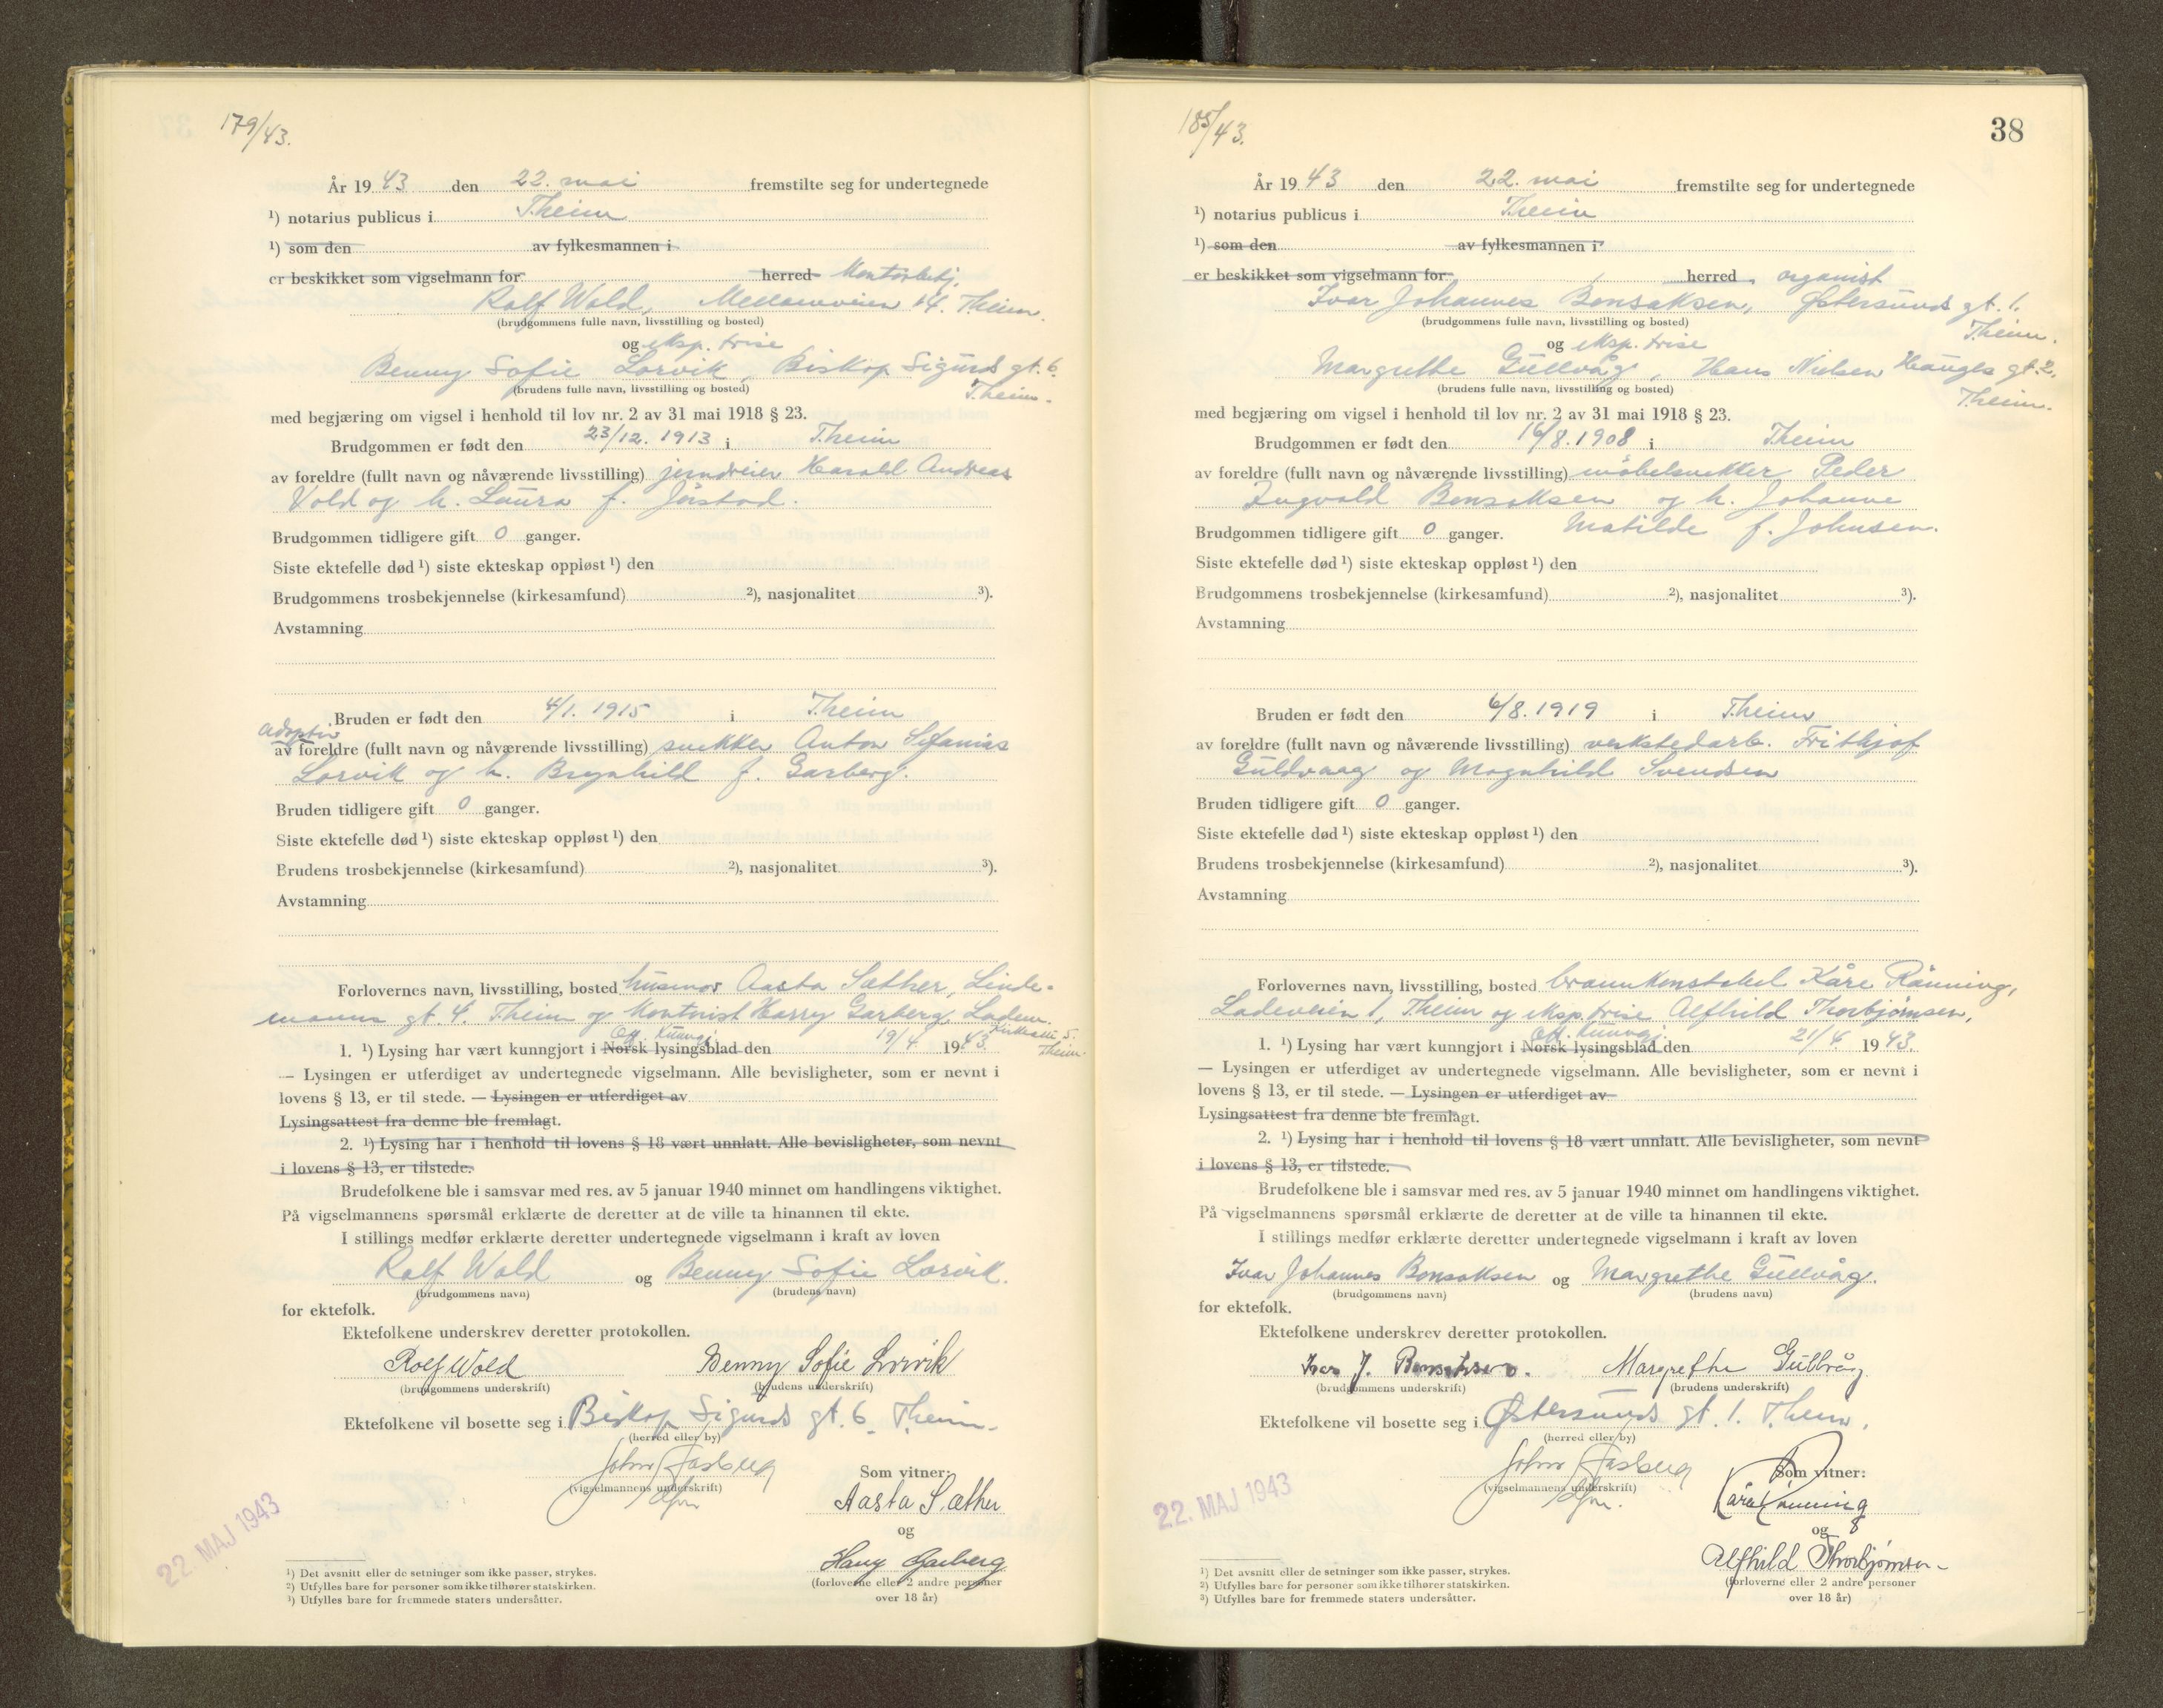 179/43.
År 19 43 den 22. mai fremstilte seg for undertegnede
¹) notarius publicus i Theim
¹) som den av fylkesmannen i
er beskikket som vigselmann for herred Kontorbetj.
Rolf Wold, Mellomveien 14. Theim.
(brudgommens fulle navn, livsstilling og bosted)
og eksp. trise
Benny Sofie Lorvik, Biskop Sigurds gt. 6.
Theim.
(brudens fulle navn, livsstilling og bosted)
med begjæring om vigsel i henhold til lov nr. 2 av 31 mai 1918 § 23.
Brudgommen er født den 23/12. 1913 i Theim
av foreldre (fullt navn og nåværende livsstilling) jerndreier Harald Andreas
Vold og h. Laura f. Jørstad.
Brudgommen tidligere gift 0 ganger.
Siste ektefelle død ¹) siste ekteskap oppløst ¹) den
Brudgommens trosbekjennelse (kirkesamfund) ²), nasjonalitet ³).
Avstamning
Bruden er født den 4/1. 1915 i Theim
adoptiv
av foreldre (fullt navn og nåværende livsstilling) snekker Anton Sefanias
Lorvik og h. Brynhild f. Garberg.
Bruden tidligere gift 0 ganger.
Siste ektefelle død ¹) siste ekteskap oppløst ¹) den
Brudens trosbekjennelse (kirkesamfund) ²), nasjonalitet ³).
Avstamning
Forlovernes navn, livsstilling, bosted husmor Aasta Sæther, Linde-
manns gt. 4. Theim og kontorist Harry Garberg, Ladem.
Kirkesti 5.
Theim.
Off. kunngj.
1. ¹) Lysing har vært kunngjort i Norsk lysingsblad den 19/4 1943.
— Lysingen er utferdiget av undertegnede vigselmann. Alle bevisligheter, som er nevnt i
lovens § 13, er til stede. — Lysingen er utferdiget av
Lysingsattest fra denne ble fremlagt.
2. ¹) Lysing har i henhold til lovens § 18 vært unnlatt. Alle bevisligheter, som nevnt
i lovens § 13, er tilstede.
Brudefolkene ble i samsvar med res. av 5 januar 1940 minnet om handlingens viktighet.
På vigselmannens spørsmål erklærte de deretter at de ville ta hinannen til ekte.
I stillings medfør erklærte deretter undertegnede vigselmann i kraft av loven
Rolf Wold og Benny Sofie Lorvik.
(brudgommens navn) (brudens navn)
for ektefolk.
Ektefolkene underskrev deretter protokollen.
Rolf Wold Benny Sofie Lorvik
(brudgommens underskrift) (brudens underskrift)
Ektefolkene vil bosette seg i Biskop Sigurds gt. 6 Theim.
(herred eller by)
John Hasberg
(vigselmannens underskrift)
Som vitner:
Aasta Sæther
og
Harry Garberg
(forloverne eller 2 andre personer
over 18 år)
22. MAJ 1943
¹) Det avsnitt eller de setninger som ikke passer, strykes.
²) Utfylles bare for personer som ikke tilhører statskirken.
³) Utfylles bare for fremmede staters undersåtter.
185/43.
38
År 19 43 den 22. mai fremstilte seg for undertegnede
¹) notarius publicus i Theim
¹) som den av fylkesmannen i
er beskikket som vigselmann for herred organist
Ivar Johannes Bonsaksen, Østersunds gt. 1.
Theim.
(brudgommens fulle navn, livsstilling og bosted)
og eksp. trise
Margrethe Gullvåg, Hans Nielsen Hauges gt. 2.
Theim.
(brudens fulle navn, livsstilling og bosted)
med begjæring om vigsel i henhold til lov nr. 2 av 31 mai 1918 § 23.
Brudgommen er født den 16/8. 1908 i Theim
av foreldre (fullt navn og nåværende livsstilling) møbelsnekker Peder
Ingvald Bonsaksen og h. Johanne
Matilde f. Johnsen.
Brudgommen tidligere gift 0 ganger.
Siste ektefelle død ¹) siste ekteskap oppløst ¹) den
Brudgommens trosbekjennelse (kirkesamfund) ²), nasjonalitet ³).
Avstamning
Bruden er født den 6/8. 1919 i Theim
av foreldre (fullt navn og nåværende livsstilling) verkstedarb. Frithjof
Guldvaag og Magnhild Svendsen
Bruden tidligere gift 0 ganger.
Siste ektefelle død ¹) siste ekteskap oppløst ¹) den
Brudens trosbekjennelse (kirkesamfund) ²), nasjonalitet ³).
Avstamning
Forlovernes navn, livsstilling, bosted brannkonstabel Kåre Rønning,
Ladeveien 1, Theim og eksp. trise Alfhild Thorbjørnsen,
Off. kunngj.
1. ¹) Lysing har vært kunngjort i Norsk lysingsblad den 21/4 1943.
— Lysingen er utferdiget av undertegnede vigselmann. Alle bevisligheter, som er nevnt i
lovens § 13, er til stede. — Lysingen er utferdiget av
Lysingsattest fra denne ble fremlagt.
2. ¹) Lysing har i henhold til lovens § 18 vært unnlatt. Alle bevisligheter, som nevnt
i lovens § 13, er tilstede.
Brudefolkene ble i samsvar med res. av 5 januar 1940 minnet om handlingens viktighet.
På vigselmannens spørsmål erklærte de deretter at de ville ta hinannen til ekte.
I stillings medfør erklærte deretter undertegnede vigselmann i kraft av loven
Ivar Johannes Bonsaksen og Margrethe Gullvåg.
(brudgommens navn) (brudens navn)
for ektefolk.
Ektefolkene underskrev deretter protokollen.
Ivar J. Bonsaksen. Margrethe Gullvåg
(brudgommens underskrift) (brudens underskrift)
Ektefolkene vil bosette seg i Østersunds gt. 1. Theim.
(herred eller by)
John Hasberg
(vigselmannens underskrift)
Som vitner:
Kåre Rønning
og
Alfhild Thorbjørnsen
(forloverne eller 2 andre personer
over 18 år)
22. MAJ 1943
¹) Det avsnitt eller de setninger som ikke passer, strykes.
²) Utfylles bare for personer som ikke tilhører statskirken.
³) Utfylles bare for fremmede staters undersåtter.